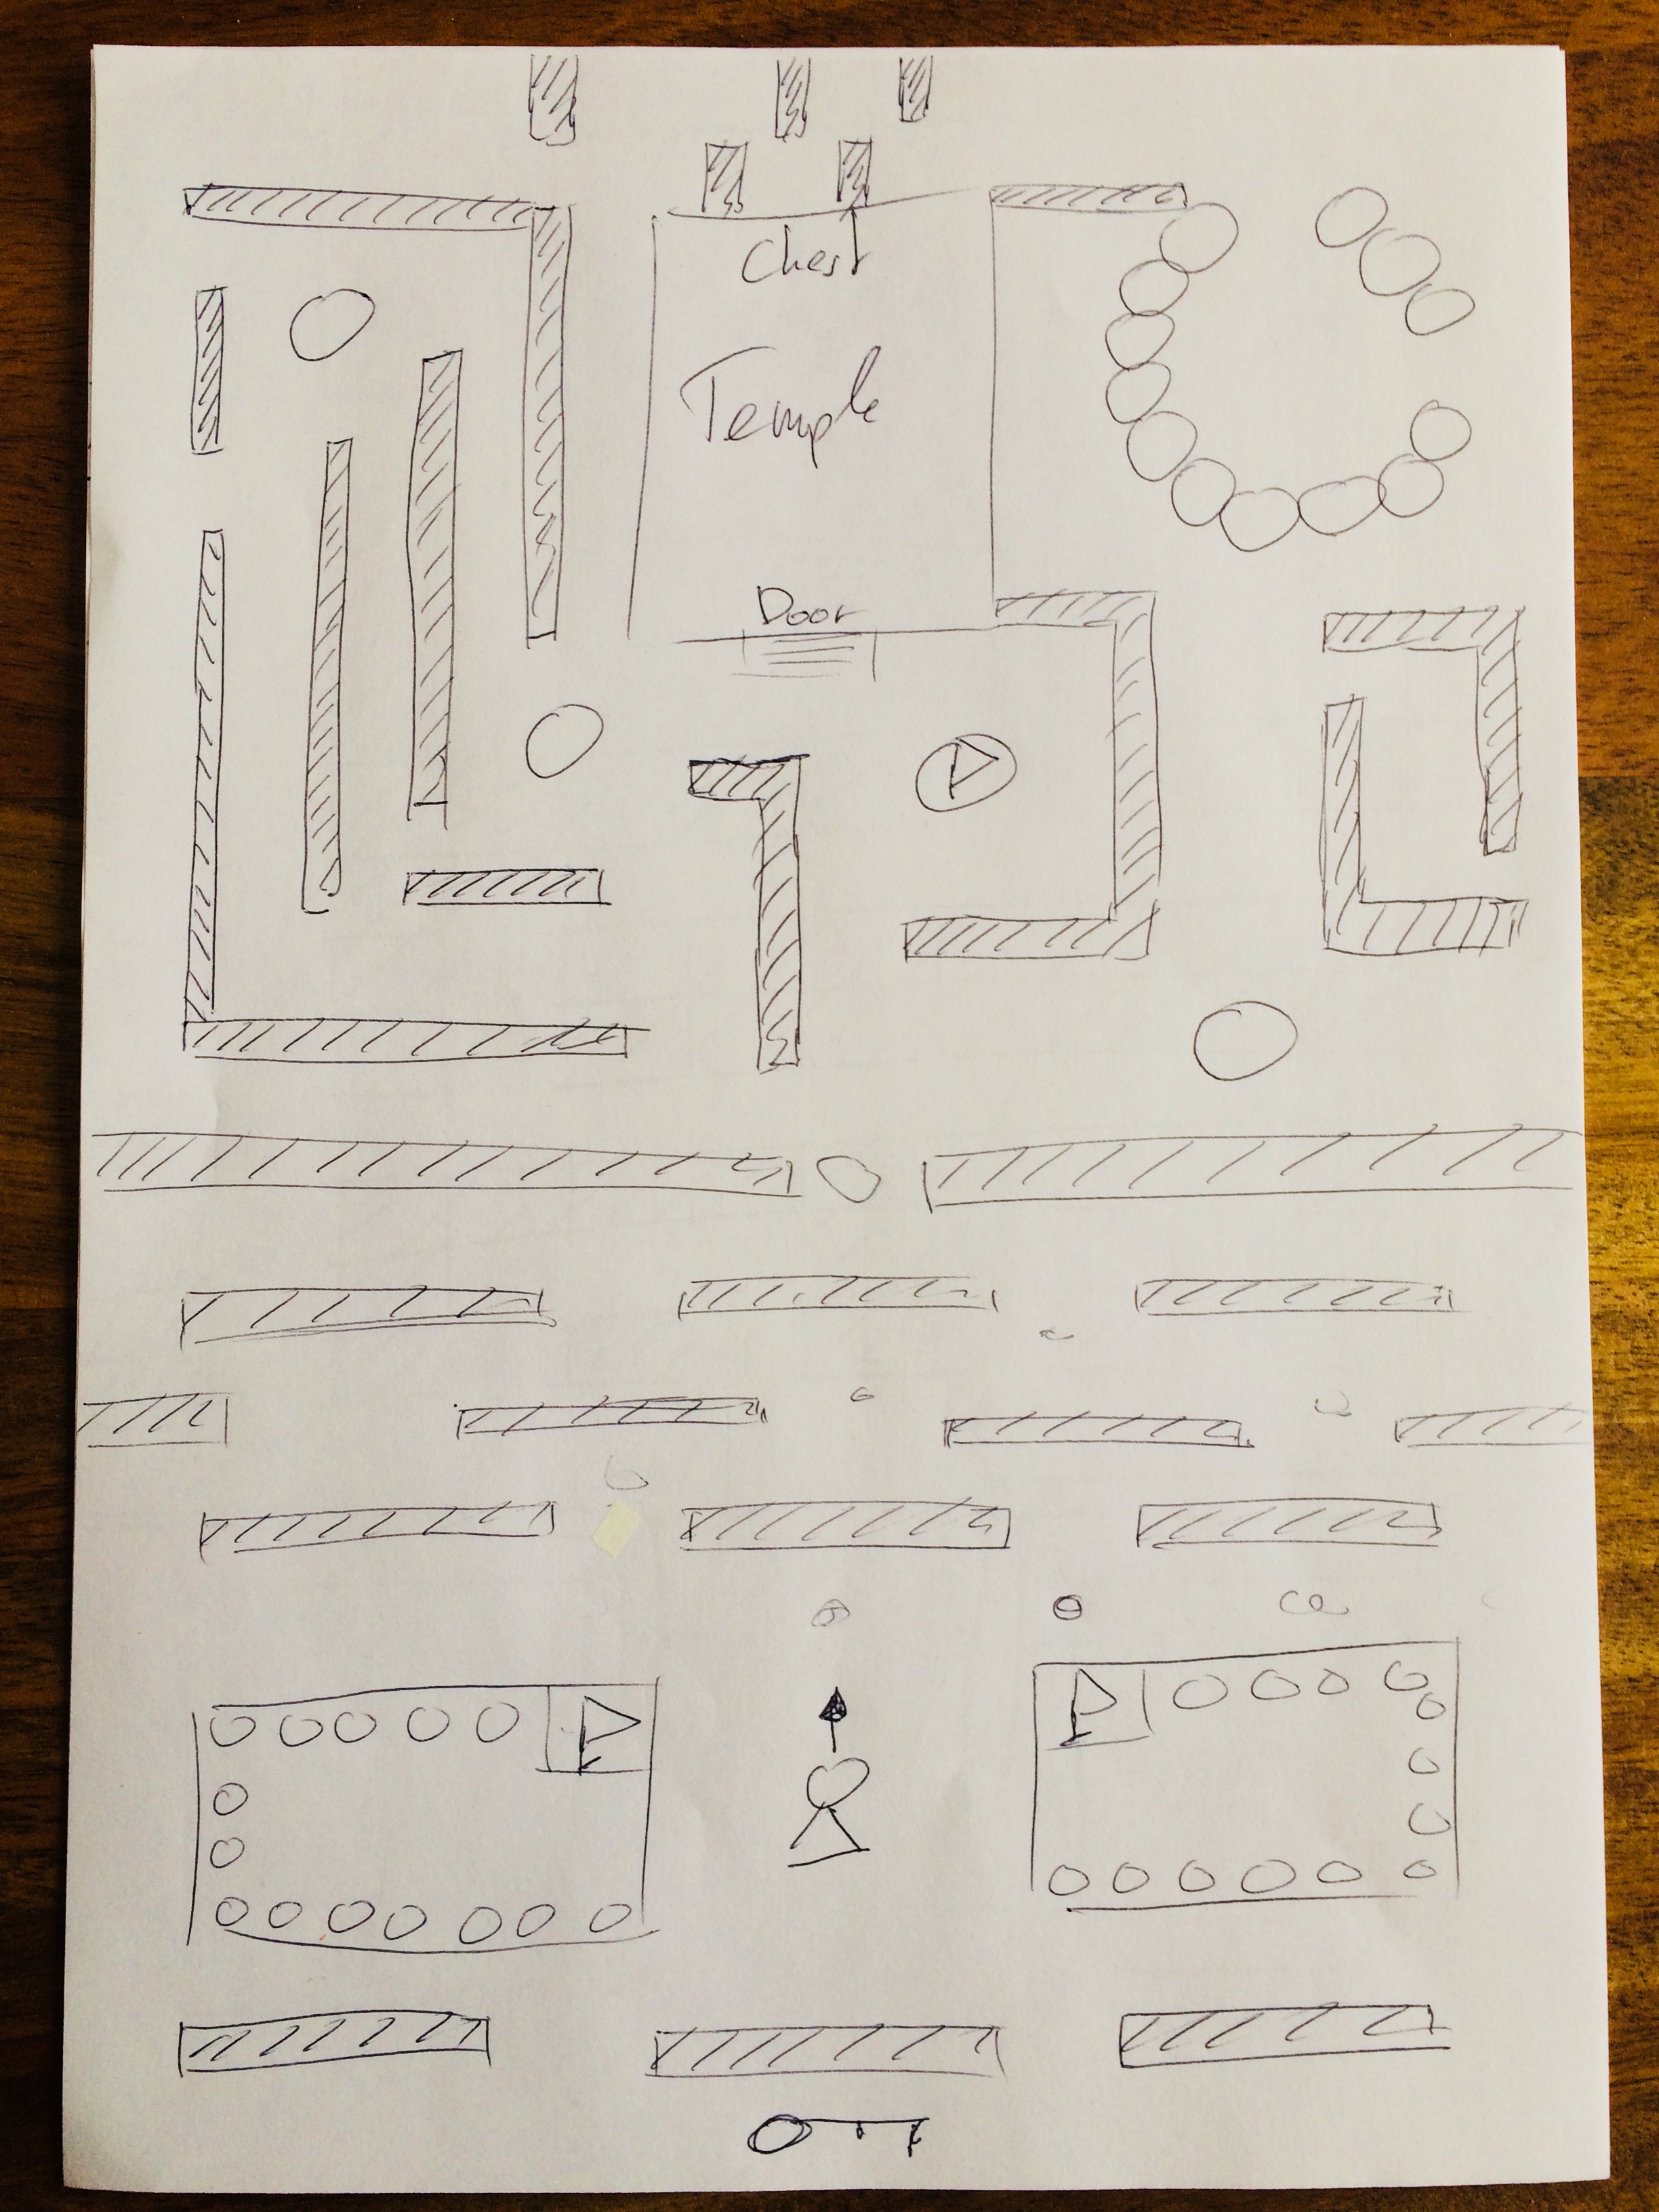 Chest
Temple
Door
P
P
P